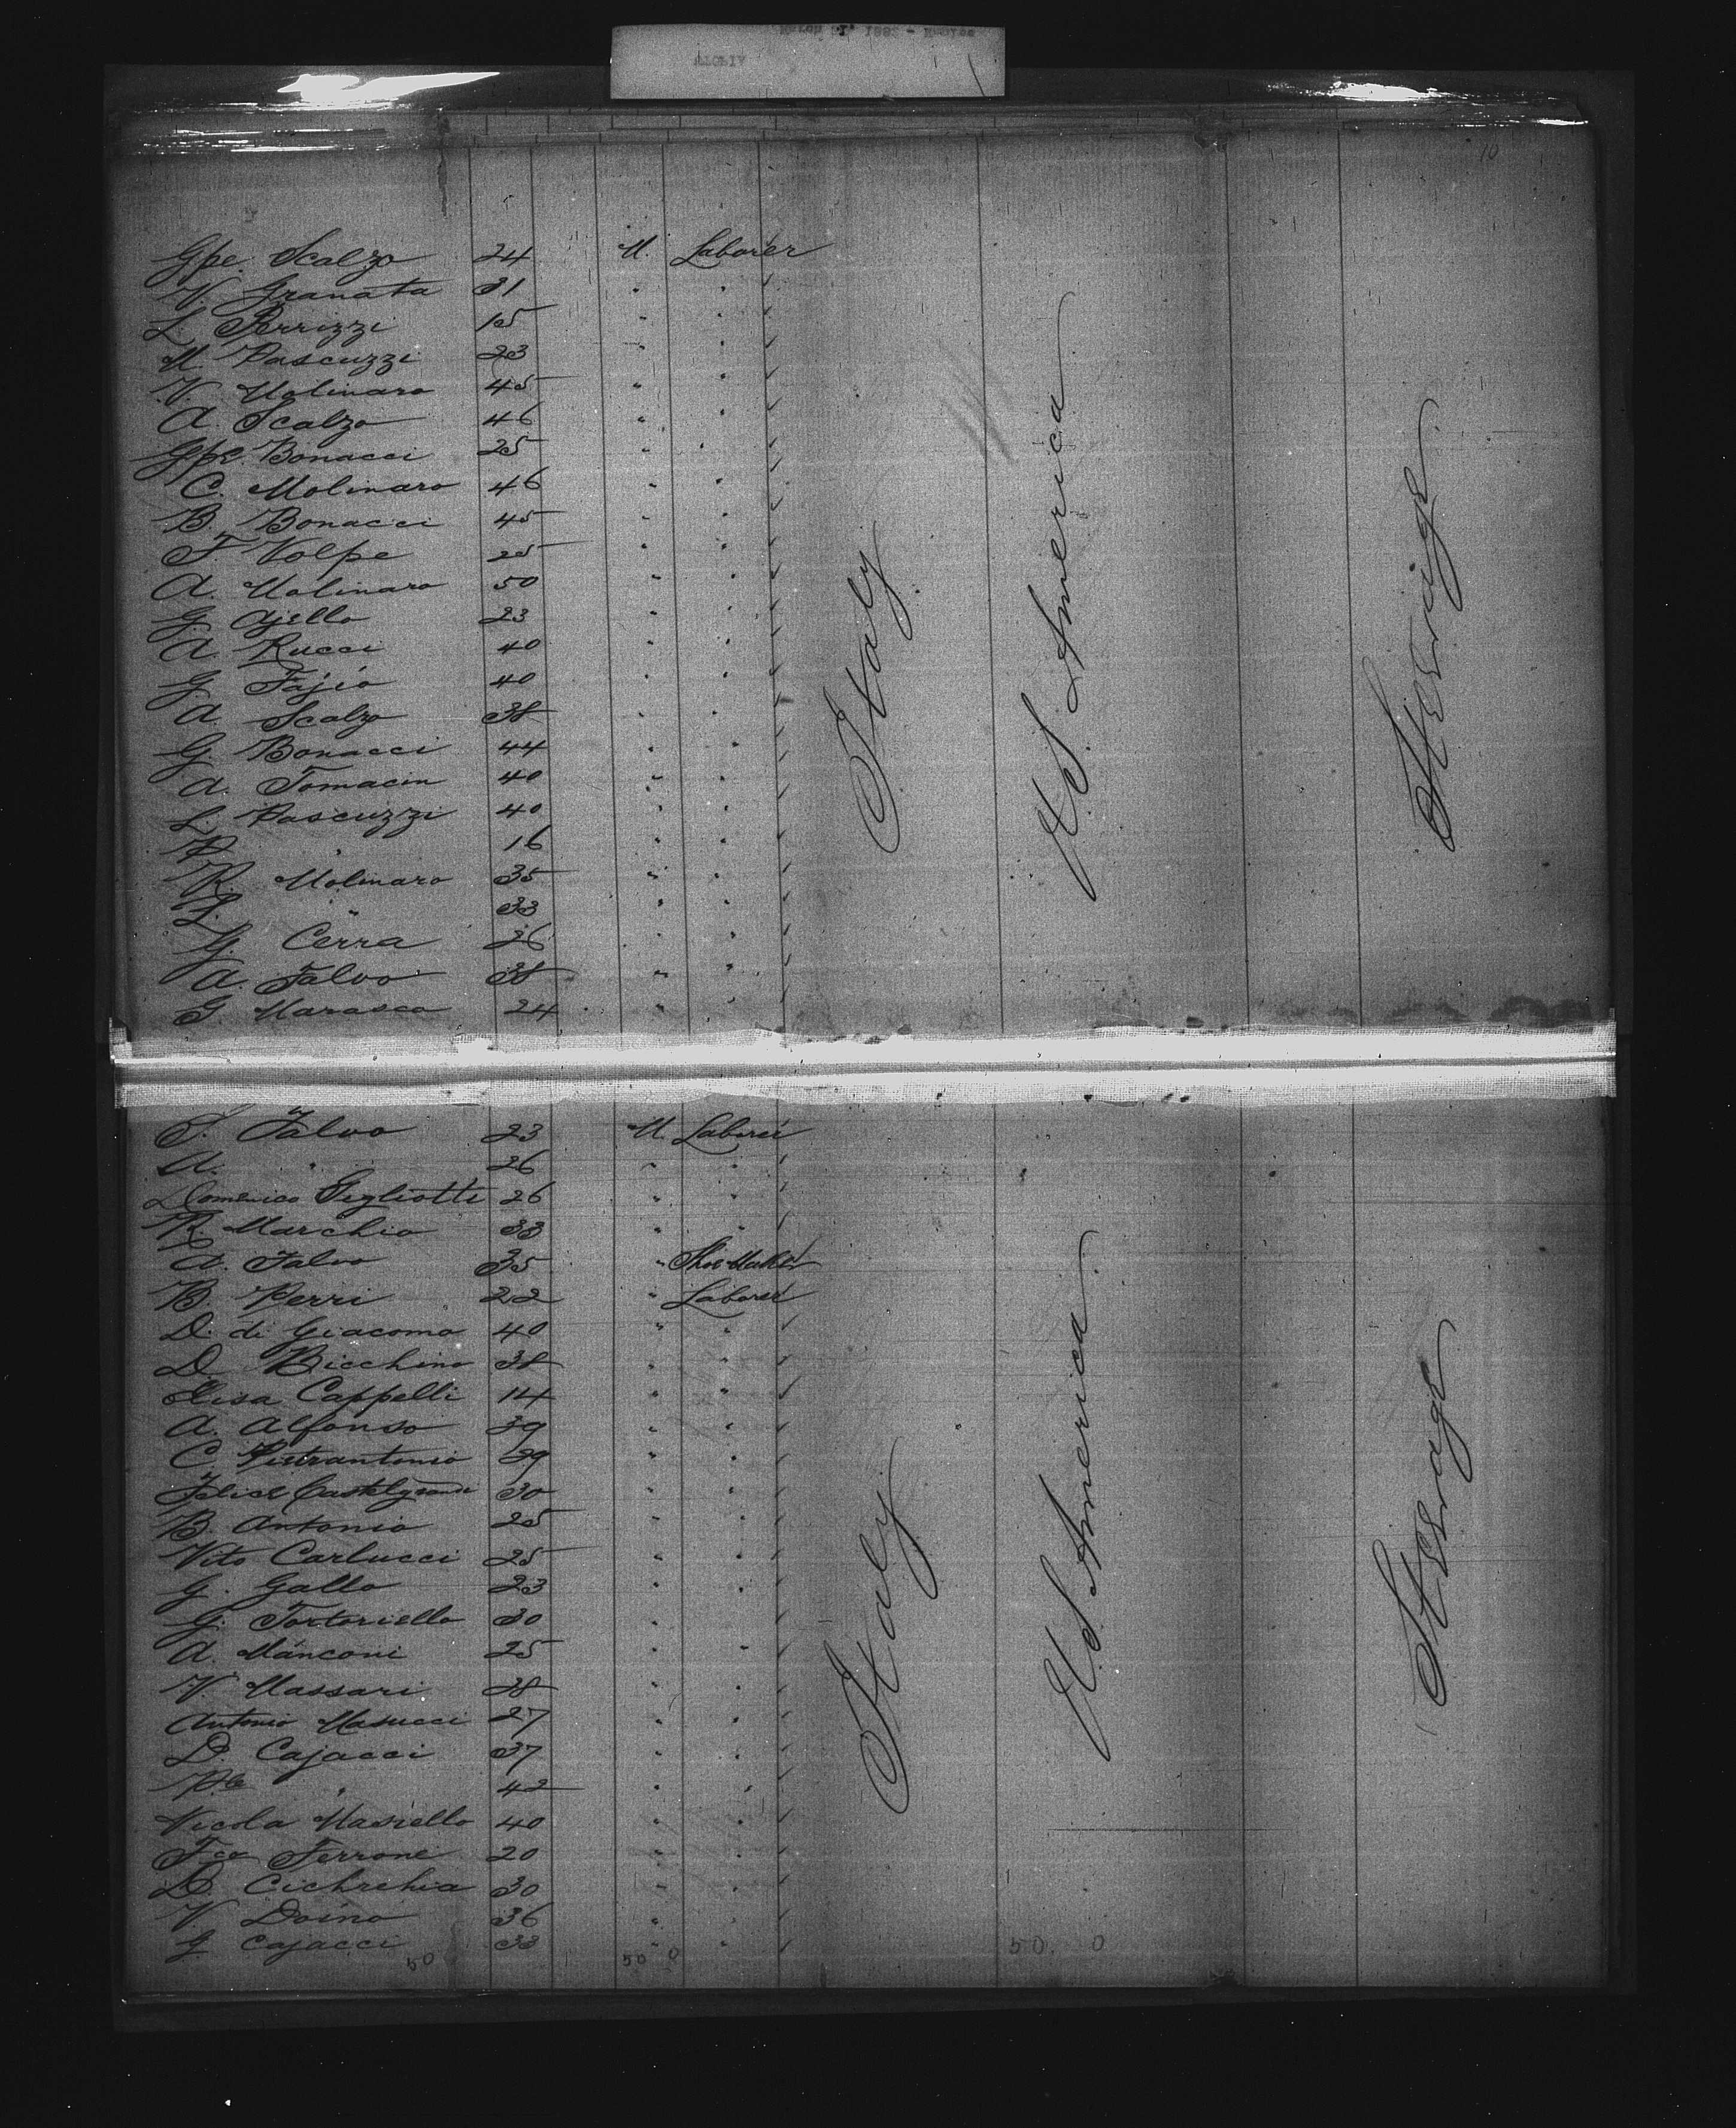 10
Gpe. Scalzo 24 M. Laborer
V. Granata 31 " "
L. Perrizzi 15 " "
M. Pascuzzi 23 " "
V. Molinaro 45 " "
A. Scalzo 46 " "
Gpe. Bonacci 25 " "
C. Molinaro 46 " "
B. Bonacci 45 " "
F. Volpe 25 " "
A. Molinaro 50 " "
G. Ajello 23 " "
A. Rucci 40 " "
G. Fajio 40 " "
A. Scalzo 38 " "
G. Bonacci 44 " "
A. Tomacin 40 " "
L. Pascuzzi 40 " "
P. " 16 " "
R. Molinaro 35 " "
L. " 33 " "
G. Cerra 26 " "
A. Falvo 38 " "
G. Marasco 24 " "
Italy
U.S. America
Steerage
S. Falvo 23 M Laborer
A. " 26 " "
Domenico Gigliotti 26 " "
R. Marchio 33 " "
A. Falvo 35 " Shoe Maker
B. Perri 22 " Laborer
D. di Giacomo 40 " "
D. Bicchino 38 " "
Elisa Cappelli 14 " "
A. Alfonso 39 " "
C. Pietrantonio 29 " "
Felice Castelgrande 30 " "
B. Antonio 25 " "
Vito Carlucci 25 " "
G. Gallo 23 " "
G. Tortoriello 30 " "
A. Manconi 25 " "
V. Massari 28 " "
Antonio Masucci 27 " "
D. Cajacci 37 " "
Ple " 42 " "
Nicola Masiello 40 " "
Fco Ferrone 20 " "
D. Cichrehia 30 " "
V. Doino 36 " "
G. Cajacci 33 " "
Italy
U.S. America
Steerage
50 50 0 50. 0